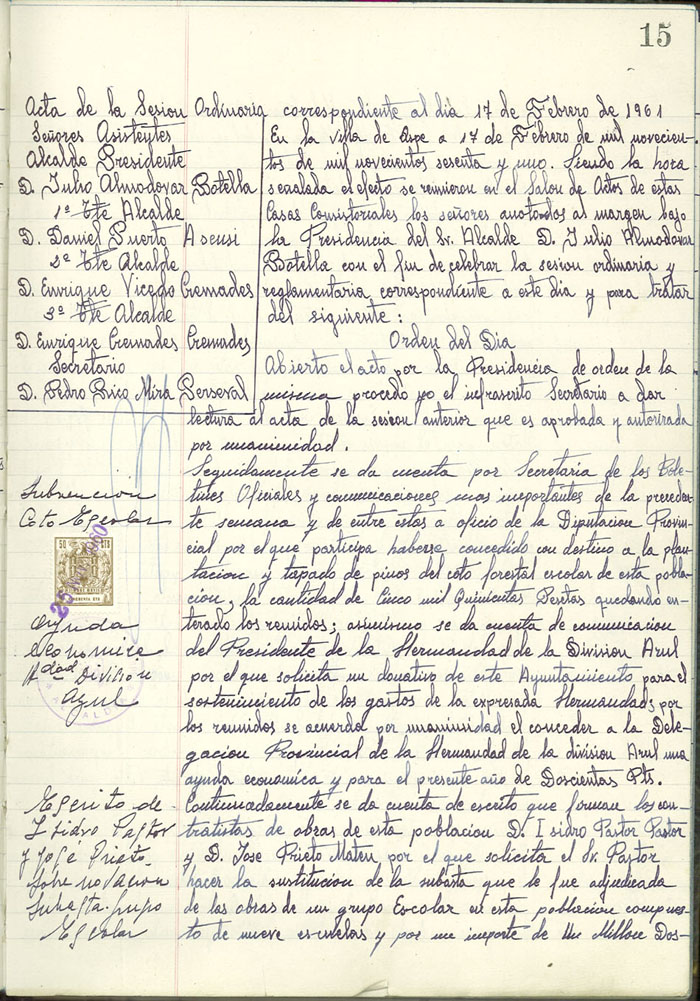 15
Acta de la Sesion Ordinaria correspondiente al dia 17 de Febrero de 1961
Señores Asistentes
Alcalde Presidente
D. Julio Almodovar Botella
1º Tte Alcalde
D. Daniel Puerto Asensi
2º Tte Alcalde
D. Enrique Vicedo Cremades
3º Tte Alcalde
D. Enrique Cremades Cremades
Secretario
D. Pedro Rico Mira Perseval
En la Villa de Aspe a 17 de Febrero de mil novecien-
tos de mil novecientos sesenta y uno. Siendo la hora
señalada el efecto se reunieron en el Salon de Actos de estas
Casas Consistoriales los señores anotados al margen bajo
la Presidencia del Sr. Alcalde D. Julio Almodovar
Botella con el fin de celebrar la sesion ordinaria y
reglamentaria correspondiente a este dia y para tratar
del siguiente:
Orden del Dia
Abierto el acto por la Presidencia de orden de la
misma procedo yo el infrascrito Secretario a dar
lectura al acta de la sesion anterior que es aprobada y autorizada
por unanimidad.
Subvencion
Coto Escolar
Seguidamente se da cuenta por Secretaria de los Bole-
tines Oficiales y comunicaciones mas importantes de la preceden-
te semana y de entre estas a oficio de la Diputacion Provin-
cial por el que participa haberse concedido con destino a la plan-
tacion y tapado de pinos del coto forestal escolar de esta pobla-
cion, la cantidad de Cinco mil Quinientas Pesetas quedando en-
terado los reunidos; asimismo se da cuenta de comunicacion
del Presidente de la Hermandad de la Division Azul
por el que solicita un donativo de este Ayuntamiento para el
sostenimiento de los gastos de la expresada Hermandad; por
los reunidos se acuerda por unanimidad el conceder a la Dele-
gacion Provincial de la Hermandad de la division Azul una
ayuda economica y para el presente año de Doscientas Pts.
50 CTS
Ayuda
economica
Hdad Division
Azul
Escrito de
Isidro Pastor
y José Prieto
sobre novacion
subasta grupo
Escolar
Continuadamente se da cuenta de escrito que forman los con-
tratistas de obras de esta poblacion D. Isidro Pastor Pastor
y D. Jose Prieto Mateu por el que solicita el Sr. Pastor
hacer la sustitucion de la subasta que le fue adjudicada
de las obras de un grupo Escolar en esta poblacion compues-
to de nueve escuelas y por un importe de Un Millon Dos-